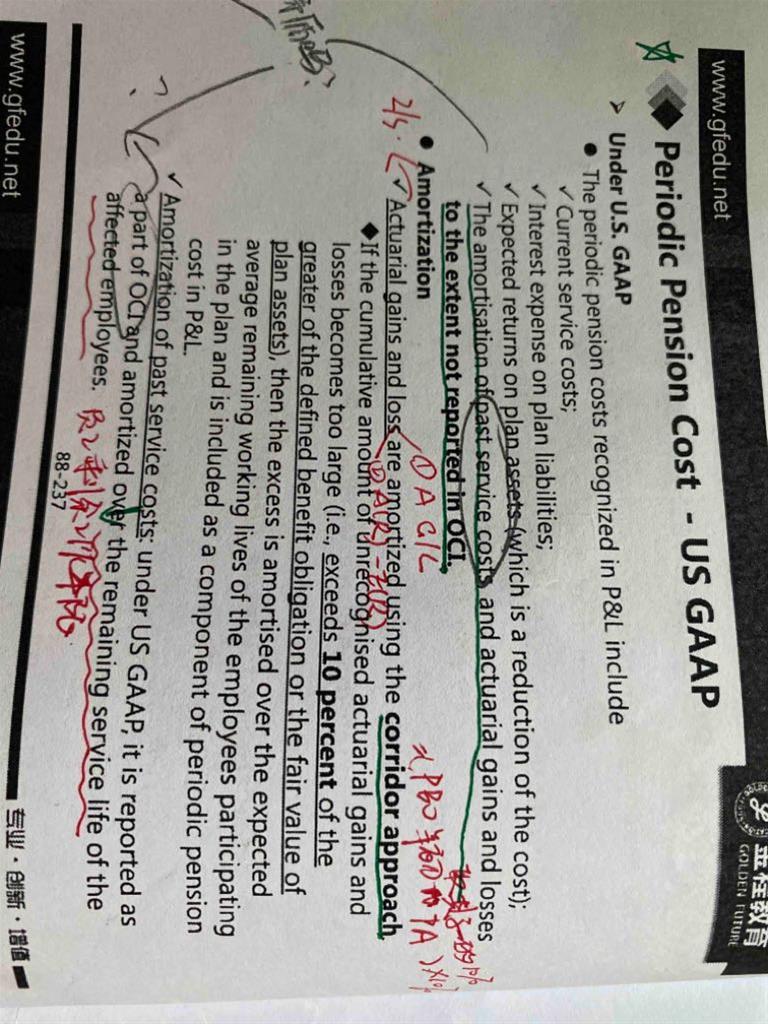 www.gfedu.net
金程教育
GOLDEN FUTURE
Periodic Pension Cost - US GAAP
➤ Under U.S. GAAP
● The periodic pension costs recognized in P&L include
✓ Current service costs;
✓ Interest expense on plan liabilities;
✓ Expected returns on plan assets (which is a reduction of the cost);
✓ The amortisation of past service costs and actuarial gains and losses
to the extent not reported in OCI.
① A G/L
● Amortization
✓ Actuarial gains and loss are amortized using the corridor approach
◆ If the cumulative amount of unrecognised actuarial gains and
losses becomes too large (i.e., exceeds 10 percent of the
greater of the defined benefit obligation or the fair value of
plan assets), then the excess is amortised over the expected
average remaining working lives of the employees participating
in the plan and is included as a component of periodic pension
cost in P&L.
✓ Amortization of past service costs: under US GAAP, it is reported as
?
a part of OCI and amortized over the remaining service life of the
affected employees.
88-237
www.gfedu.net
专业·创新·增值